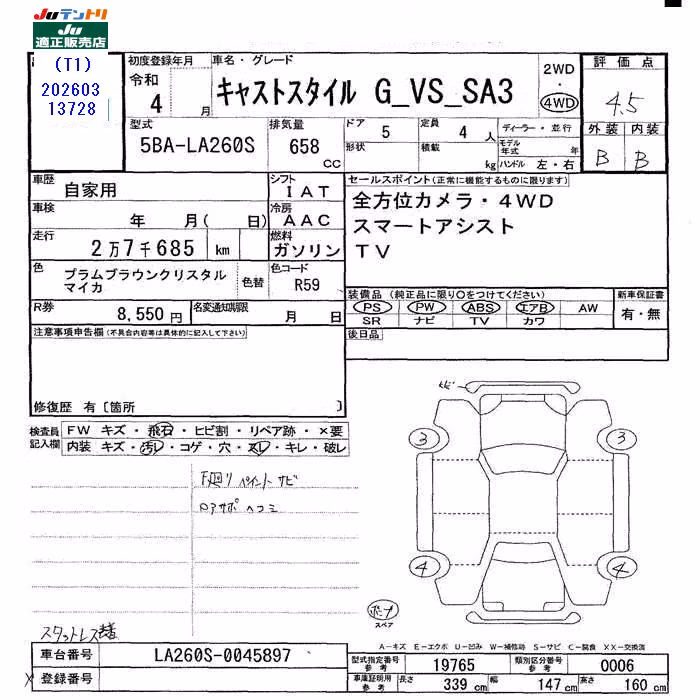 JUテントリ
JU
適正販売店
(T1)
202603
13728
初度登録年月
令和
4 月
車名・グレード
キャストスタイル G_VS_SA3
2WD
・
4WD
評価点
4.5
外装 内装
B B
型式
5BA-LA260S
排気量
658 CC
ドア 5
定員 4 人
形状
積載 kg
ディーラー・並行
モデル年式 年
ハンドル 左・右
車歴 自家用
シフト IAT
車検 年 月( 日)
冷房 AAC
走行 2万7千685 km
燃料 ガソリン
色 プラムブラウンクリスタル
マイカ
色替
色コード R59
R券 8,550円
名変通知期限 月 日
セールスポイント(正常に機能するものに限ります)
全方位カメラ・4WD
スマートアシスト
TV
装備品 (純正品に限り○をつけてください)
PS PW ABS エアB AW
SR ナビ TV カワ
新車保証書
有・無
後日品
注意事項申告欄(不具合内容等は具体的に記入して下さい)
修復歴 有〔箇所 〕
検査員
記入欄
FW キズ・飛石・ヒビ割・リペア跡・×要
内装 キズ・汚レ・コゲ・穴・スレ・キレ・破レ
下廻り ペイント サビ
ロアサポ ヘコミ
3 3
4 4
スペア
A-キズ E-エクボ U-凹み W-補修跡 S-サビ C-腐食 XX-交換済
車台番号 LA260S-0045897
X 登録番号
型式指定番号
参考
19765
類別区分番号
参考
0006
車庫証明用
参考
長さ 339 cm
幅 147 cm
高さ 160 cm